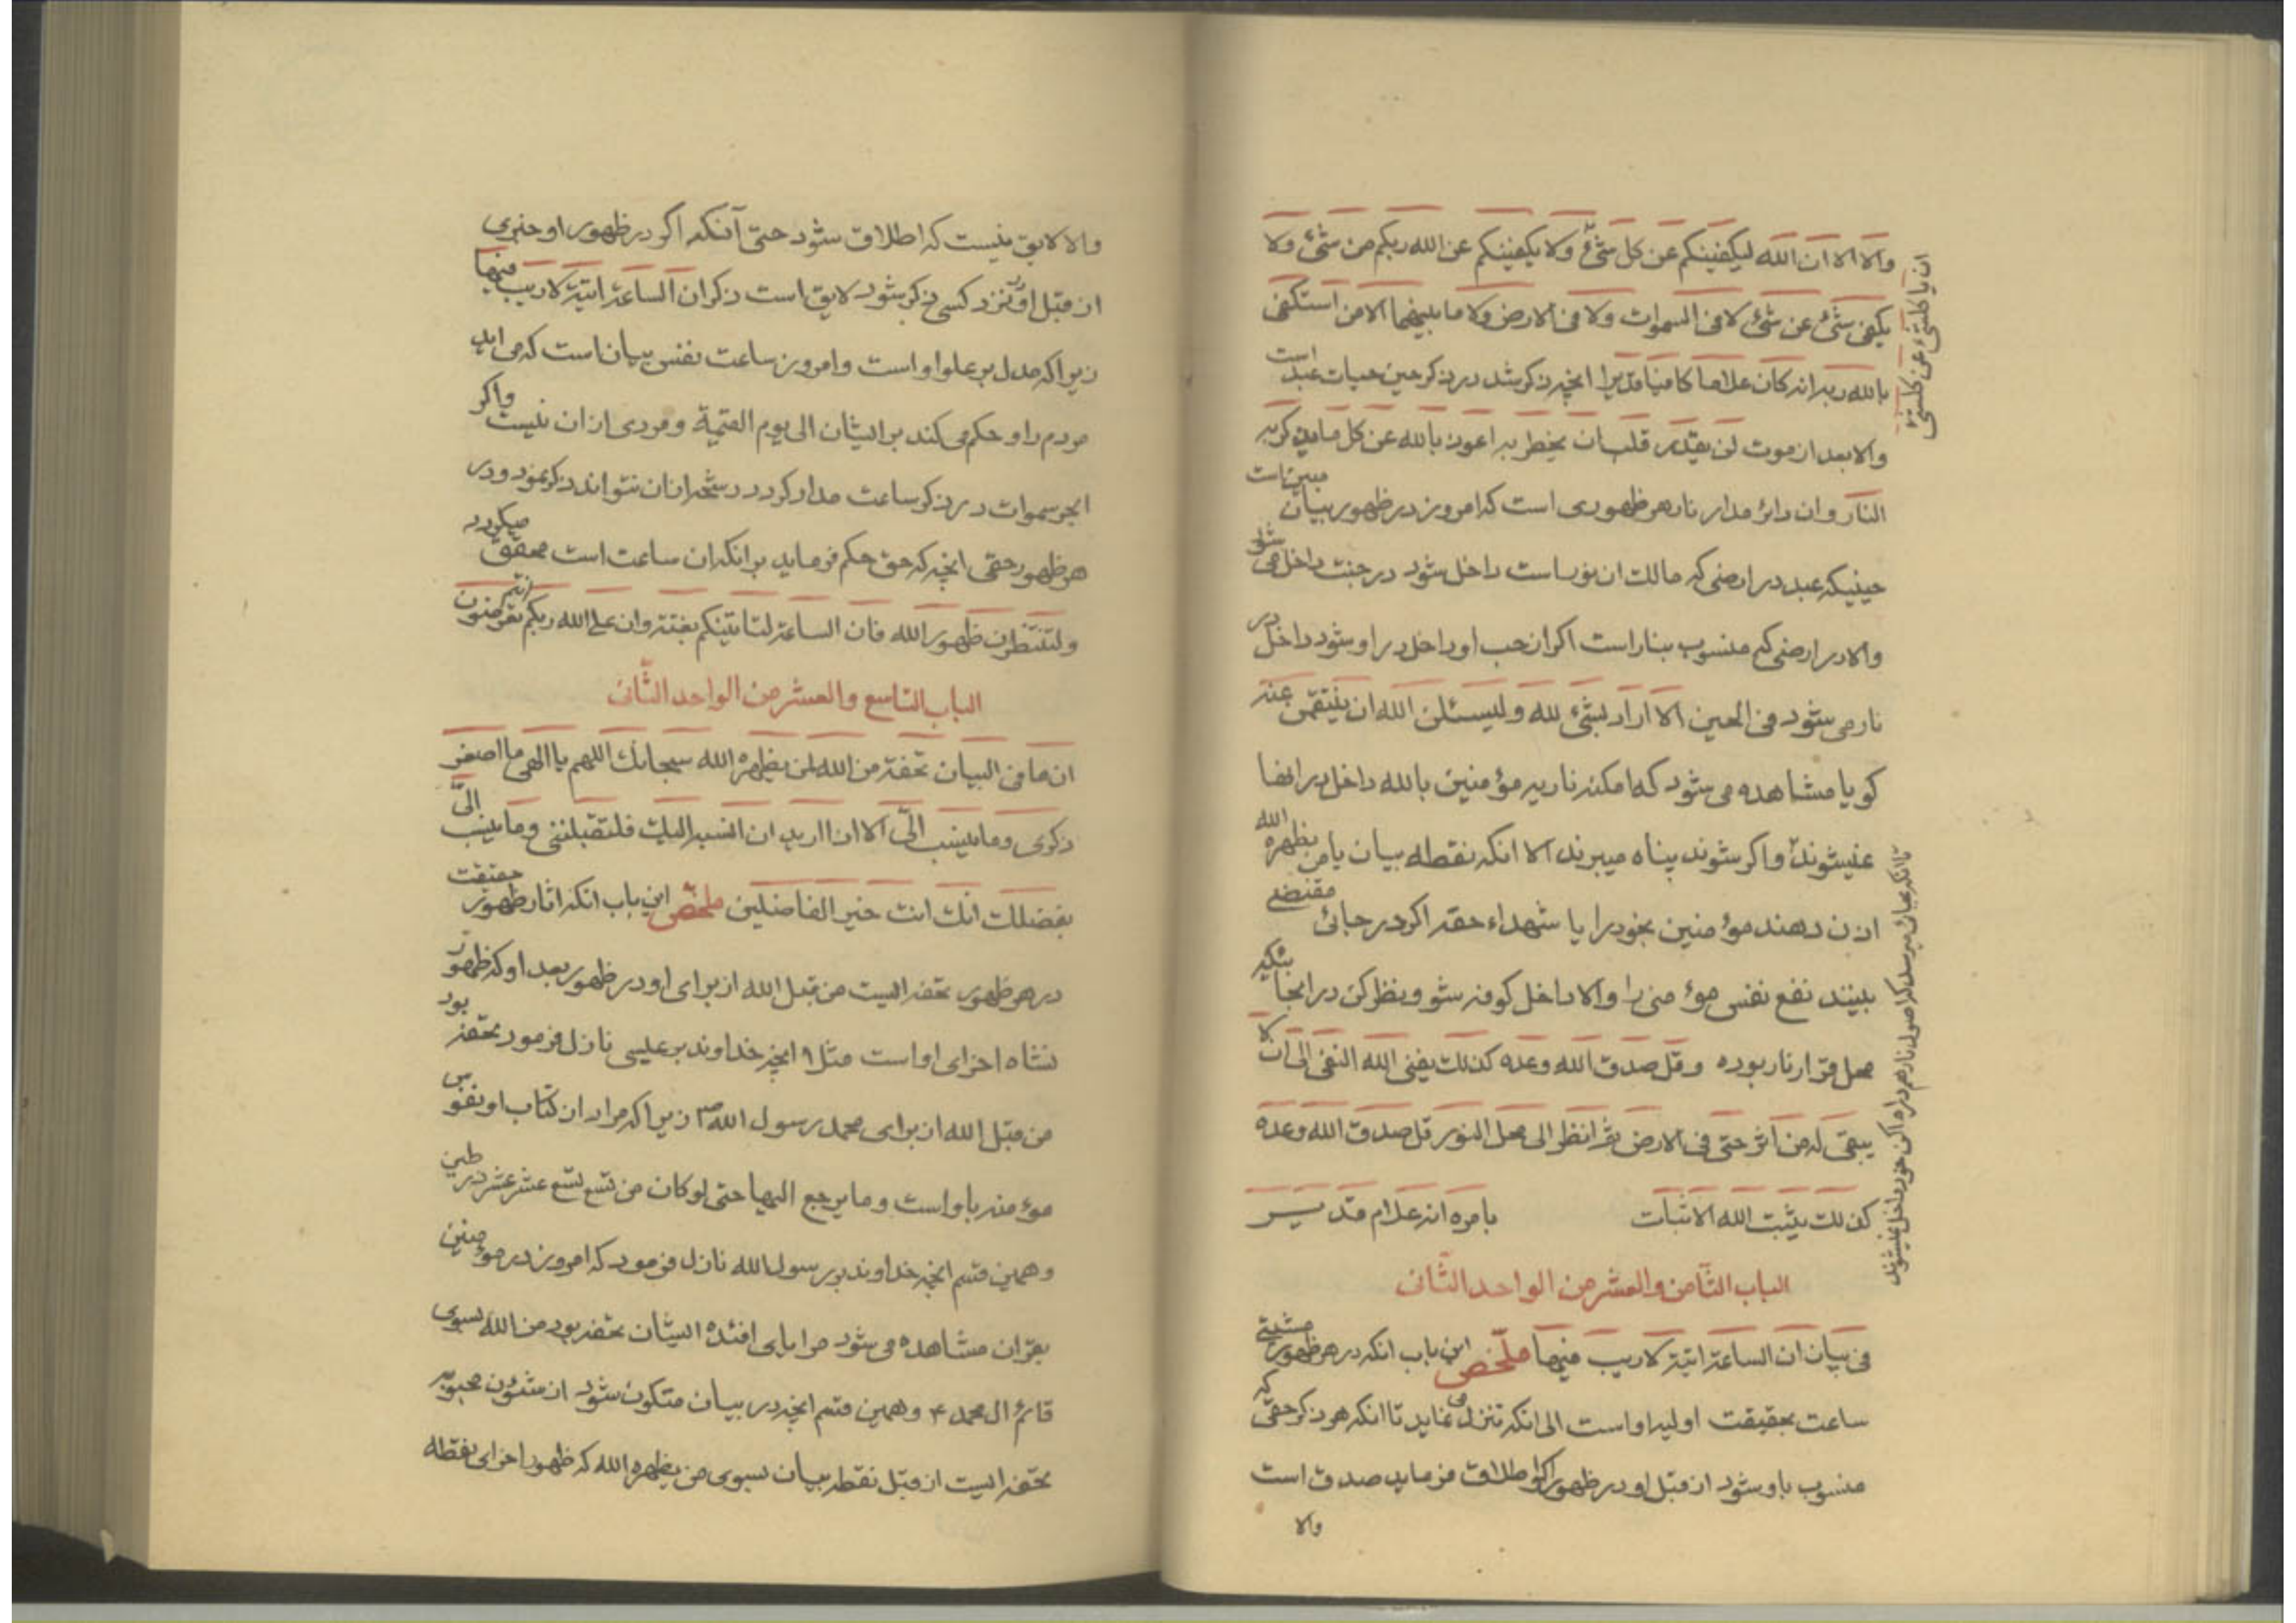 والا الا ان الله ليكفينكم عن كل شئ ولا يكفينكم عن الله ربكم من شئ ولا
يكفى شئ عن شئ لا فى السموات ولا فى الارض ولا ما بينهما الا من استكفى
بالله ربه انه كان علاما كافيا قديرا انچه ذكر شد در ذكر حين حيات عبد است
والا بعد از موت لن يقدر قلب ان يخطر به اعوذ بالله عن كل ما يذكر به
النار و ان دائر مدار نار هر ظهورى است كه امروز در ظهور بيان مبين است
حينيكه عبد در ارضى كه مالك ان نور است داخل شود در جنت داخل مى شود
والا در ارضى كه منسوب بنار است اگر از حب او داخل در او شود داخل در
نار مى شود فى الحين الا اراد بشئ لله و ليسئلن الله ان ينتقمن عنه
كويا مشاهده مى شود كه امكنه ناريه مؤمنين بالله داخل در انها
نميشوند واكر شوند پناه ميبرند الا انكه نقطه بيان يا من يظهره الله
اذن دهند مؤمنين بخود را يا شهداء حقه اكر در جائى مقتضى
ببينند نفع نفس مؤمنى را والا داخل كوفه شو و نظر كن در انجا بشكيه
محل قرار نار بوده و قل صدق الله وعده كذلك يفنى الله النفى الى ان لا
يبقى له من اثر حتى فى الارض ثم انظر الى محل النور قل صدق الله وعده
كذلك يثبت الله الاثبات بامره انه علام قدير
الباب الثامن والعشر من الواحد الثانى
فى بيان ان الساعة اتية لا ريب فيها ملخص اين باب انكه در هر ظهور مشيتى
ساعت بحقيقت اوليه او است الى انكه تنزل مى نمايد تا انكه هر ذكر حقى كه
منسوب باو شود از قبل او در ظهور اكر اطلاق فرمايد صدق است
والا
ان يا كلشئ عن كلشئ
تا انكه بجائى ميرسد كه اصول نار هم در راه اكن خود داخل نميشوند
والا لايق نيست كه اطلاق شود حتى آنكه اكر در ظهور او چيزى
از قبل او نزد كسى ذكر شود لايق است ذكر ان الساعة اتية لا ريب فيها
زيرا كه مدل بر علو او است و امروز ساعت نفس بيان است كه مى ايد
مردم را و حكم مى كند بر ايشان الى يوم القيمة و مردى از ان نيست واكر
ابحر سموات در ذكر ساعت مداد كردد رشحه از ان نتواند ذكر نمود و در
هر ظهور حقى انچه كه حق حكم فرمايد بر انكه ان ساعت است محقق ميكردد
ولتنتظرن ظهور الله فان الساعة لتاتينكم بغتة وان على الله ربكم انتم تعرضون
الباب التاسع والعشر من الواحد الثانى
ان ما فى البيان تحفة من الله لمن يظهره الله سبحانك اللهم يا الهى ما اصغر
ذكرى وما ينسب الىّ الا اذا اريد ان انسبه اليك فلتقبلننى وما ينسب الىّ
بفضلك انك انت خير الفاضلين ملخص اين باب انكه اثار ظهور حقيقت
در هر ظهور تحفه ايست من قبل الله از براى او در ظهور بعد او كه ظهور
نشاه اخراى او است مثلا انچه خداوند بر عيسى نازل فرمود تحفه بود
من قبل الله از براى محمد رسول الله ص زيرا كه مراد از كتاب او نفوس
مؤمنه باو است وما يرجع اليها حتى لو كان من تسع تسع عشر عشر در طين
و همين قسم انچه خداوند بر رسول الله نازل فرمود كه امروز در مؤمنين
بقران مشاهده مى شود مراياى افئده ايشان تحفه بود من الله بسوى
قائم ال محمد ع و همين قسم انچه در بيان متكون شود از شئون محبوبه
تحفه ايست از قبل نقطه بيان بسوى من يظهره الله كه ظهور اخراى نقطه